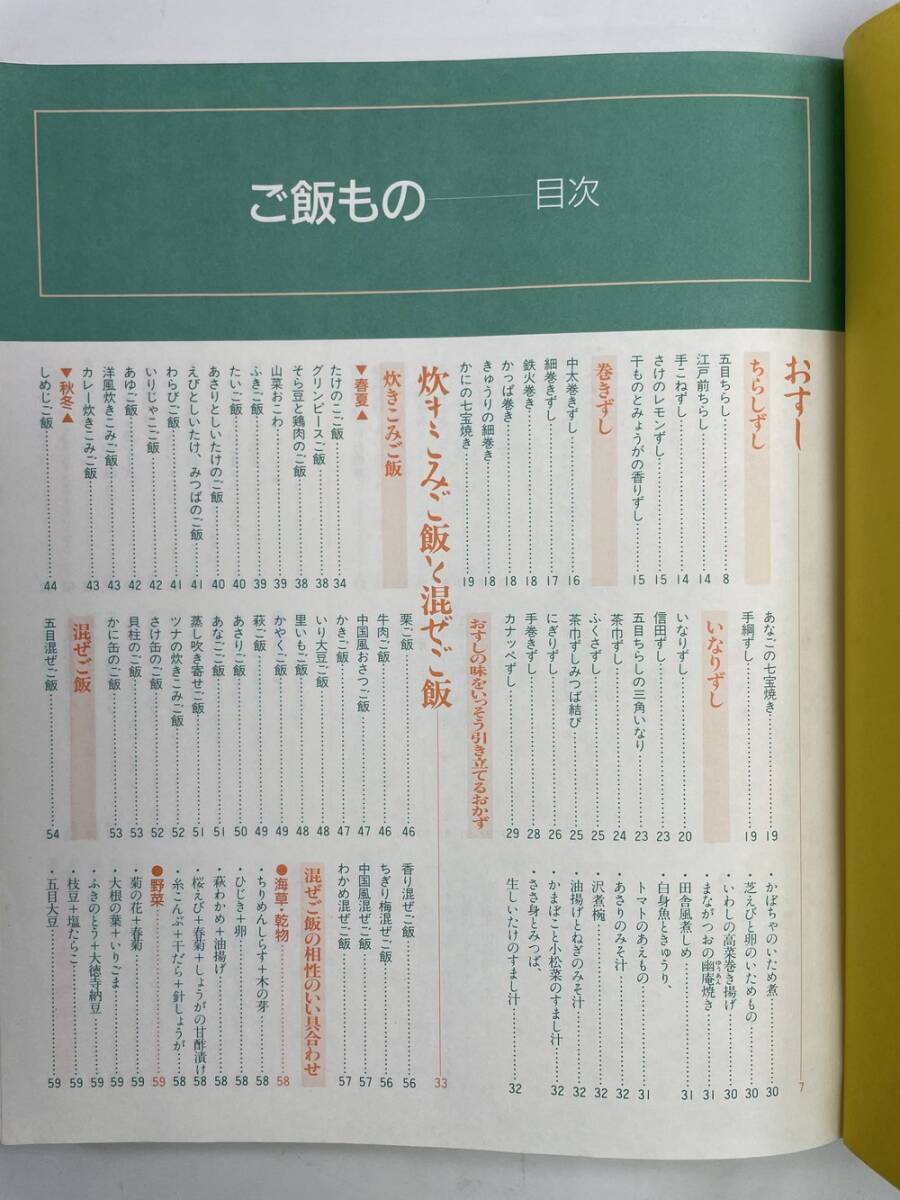 ご飯もの 目次
おすし……7
ちらしずし
五目ちらし……8
江戸前ちらし……14
手こねずし……14
さけのレモンずし……15
干ものとみょうがの香りずし……15
巻きずし
中太巻きずし……16
細巻きずし……17
鉄火巻き……18
かっぱ巻き……18
きゅうりの細巻き……18
かにの七宝焼き……19
あなごの七宝焼き……19
手綱ずし……19
いなりずし
いなりずし……20
信田ずし……23
五目ちらしの三角いなり……23
茶巾ずし……24
ふくさずし……25
茶巾ずしみつば結び……25
にぎりずし……26
手巻きずし……28
カナッペずし……29
おすしの味をいっそう引き立てるおかず
・かぼちゃのいため煮……30
・芝えびと卵のいためもの……30
・いわしの高菜巻き揚げ……30
・まながつおの幽庵焼き……31
ゆうあん
・田舎風煮しめ……31
・白身魚ときゅうり、
トマトのあえもの……31
・あさりのみそ汁……32
・沢煮椀……32
・油揚げとねぎのみそ汁……32
・かまぼこと小松菜のすまし汁……32
・ささ身とみつば、
生しいたけのすまし汁……32
炊きこみご飯と混ぜご飯……33
炊きこみご飯
▼春夏▲
たけのこご飯……34
グリンピースご飯……38
そら豆と鶏肉のご飯……38
山菜おこわ……39
ふきご飯……39
たいご飯……40
あさりとしいたけのご飯……40
えびとしいたけ、みつばのご飯……41
わらびご飯……41
いりじゃこご飯……42
あゆご飯……42
洋風炊きこみご飯……43
カレー炊きこみご飯……43
▼秋冬▲
しめじご飯……44
栗ご飯……46
牛肉ご飯……46
中国風おさつご飯……47
かきご飯……47
いり大豆ご飯……48
里いもご飯……48
かやくご飯……49
萩ご飯……49
あさりご飯……50
あなごご飯……51
蒸し吹き寄せご飯……51
ツナの炊きこみご飯……52
さけ缶のご飯……52
貝柱のご飯……53
かに缶のご飯……53
混ぜご飯
五目混ぜご飯……54
香り混ぜご飯……56
ちぎり梅混ぜご飯……56
中国風混ぜご飯……57
わかめ混ぜご飯……57
混ぜご飯の相性のいい具合わせ
●海草・乾物……58
・ちりめんじらす＋木の芽……58
・ひじき＋卵……58
・萩わかめ＋油揚げ……58
・桜えび＋春菊＋しょうがの甘酢漬け……58
・糸こんぶ＋干だら＋針しょうが……58
●野菜……59
・菊の花＋春菊……59
・大根の葉＋いりごま……59
・ふきのとう＋大徳寺納豆……59
・枝豆＋塩たらこ……59
・五目大豆……59